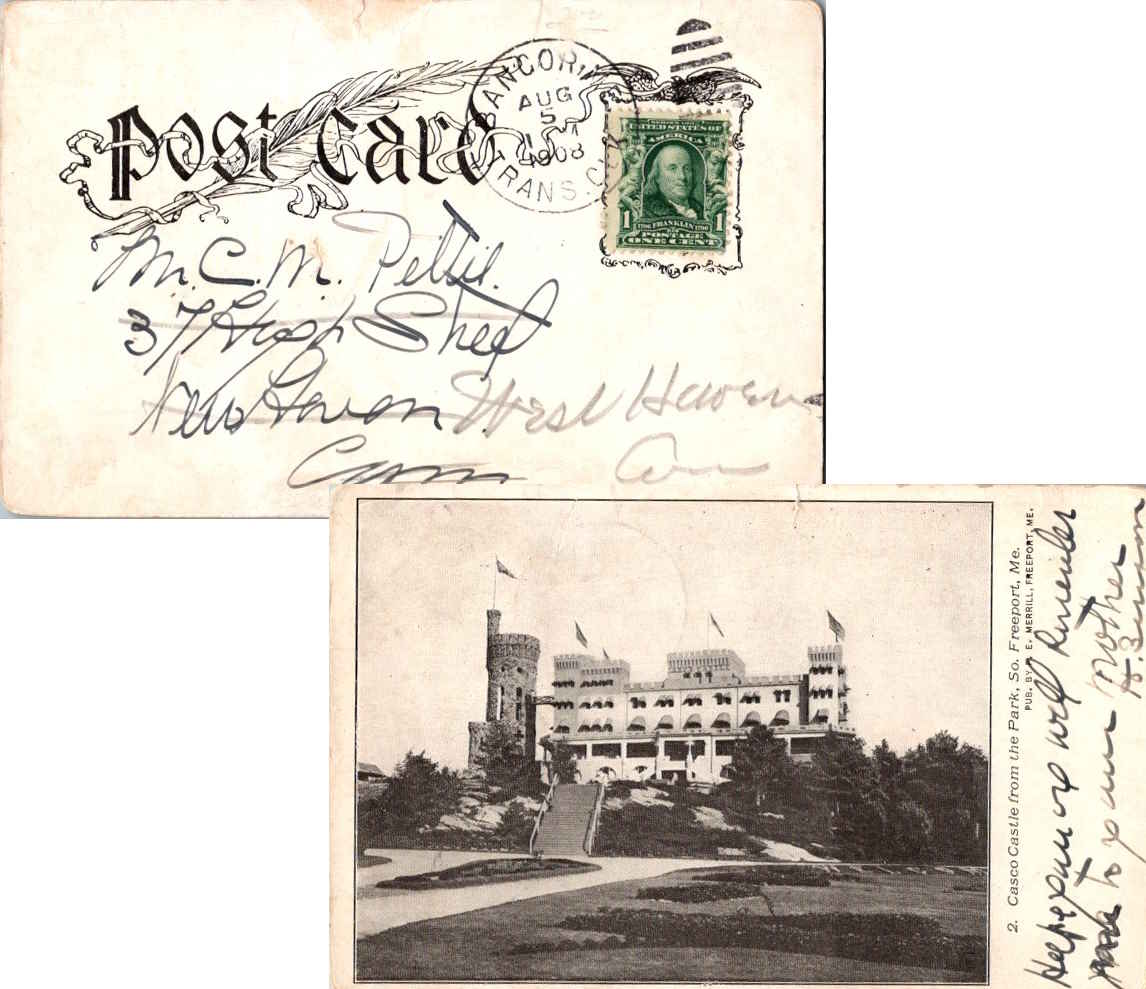 Post Card
BANGOR
AUG
5
1908
TRANS. CLK
SERIES 1902
UNITED STATES OF
AMERICA
1 1
1706 FRANKLIN 1790
POSTAGE
ONE CENT
Mr. C. M. Pettit.
37 High Street
New Haven West Haven
Conn Conn
2. Casco Castle from the Park, So. Freeport, Me.
PUB. BY E. MERRILL, FREEPORT, ME.
Hope you are well Remember
me to your Mother